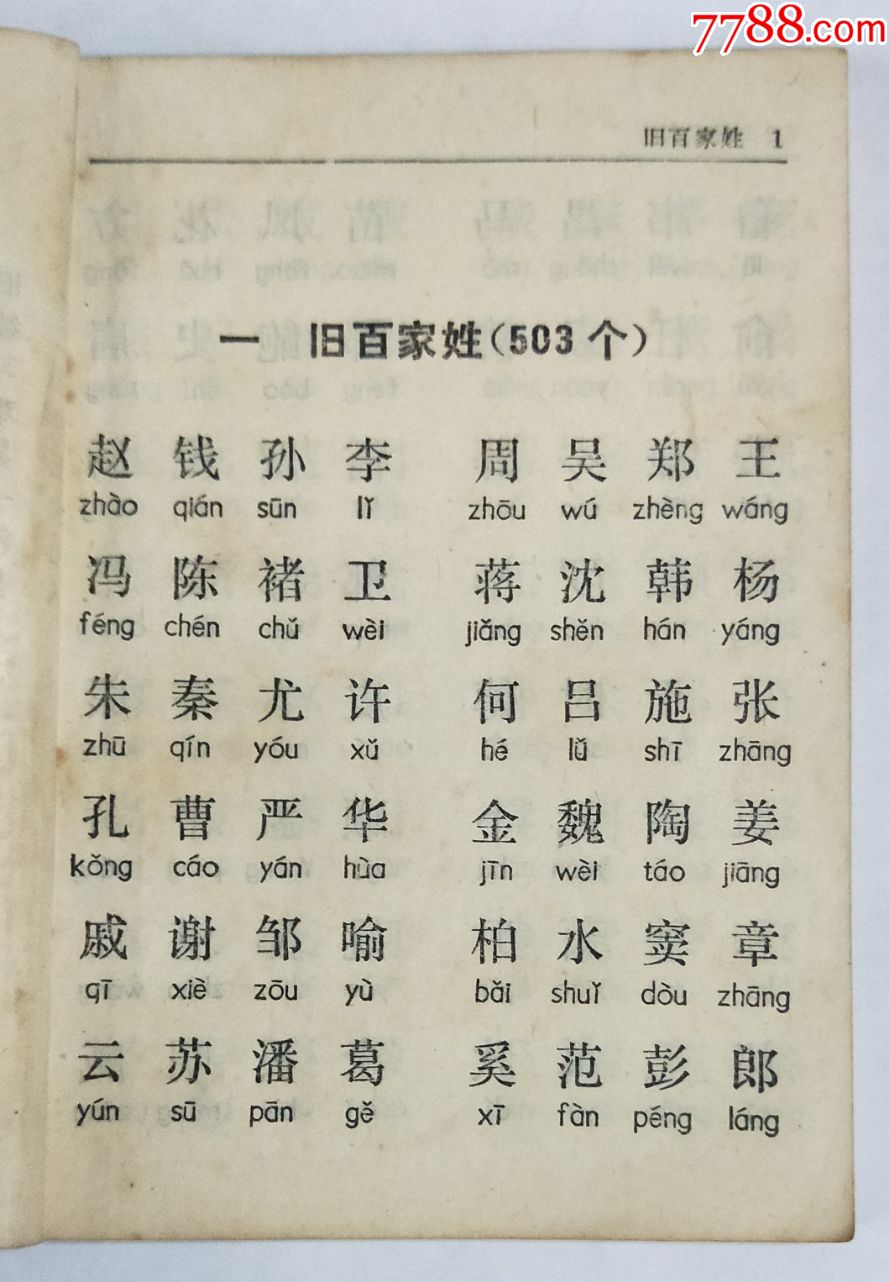 7788.com
旧百家姓 1
一 旧百家姓(503个)
赵 钱 孙 李 周 吴 郑 王
zhào qián sūn lǐ zhōu wú zhèng wáng
冯 陈 褚 卫 蒋 沈 韩 杨
féng chén chǔ wèi jiǎng shěn hán yáng
朱 秦 尤 许 何 吕 施 张
zhū qín yóu xǔ hé lǚ shī zhāng
孔 曹 严 华 金 魏 陶 姜
kǒng cáo yán hùa jīn wèi táo jiāng
戚 谢 邹 喻 柏 水 窦 章
qī xiè zōu yù bǎi shuǐ dòu zhāng
云 苏 潘 葛 奚 范 彭 郎
yún sū pān gě xī fàn péng láng